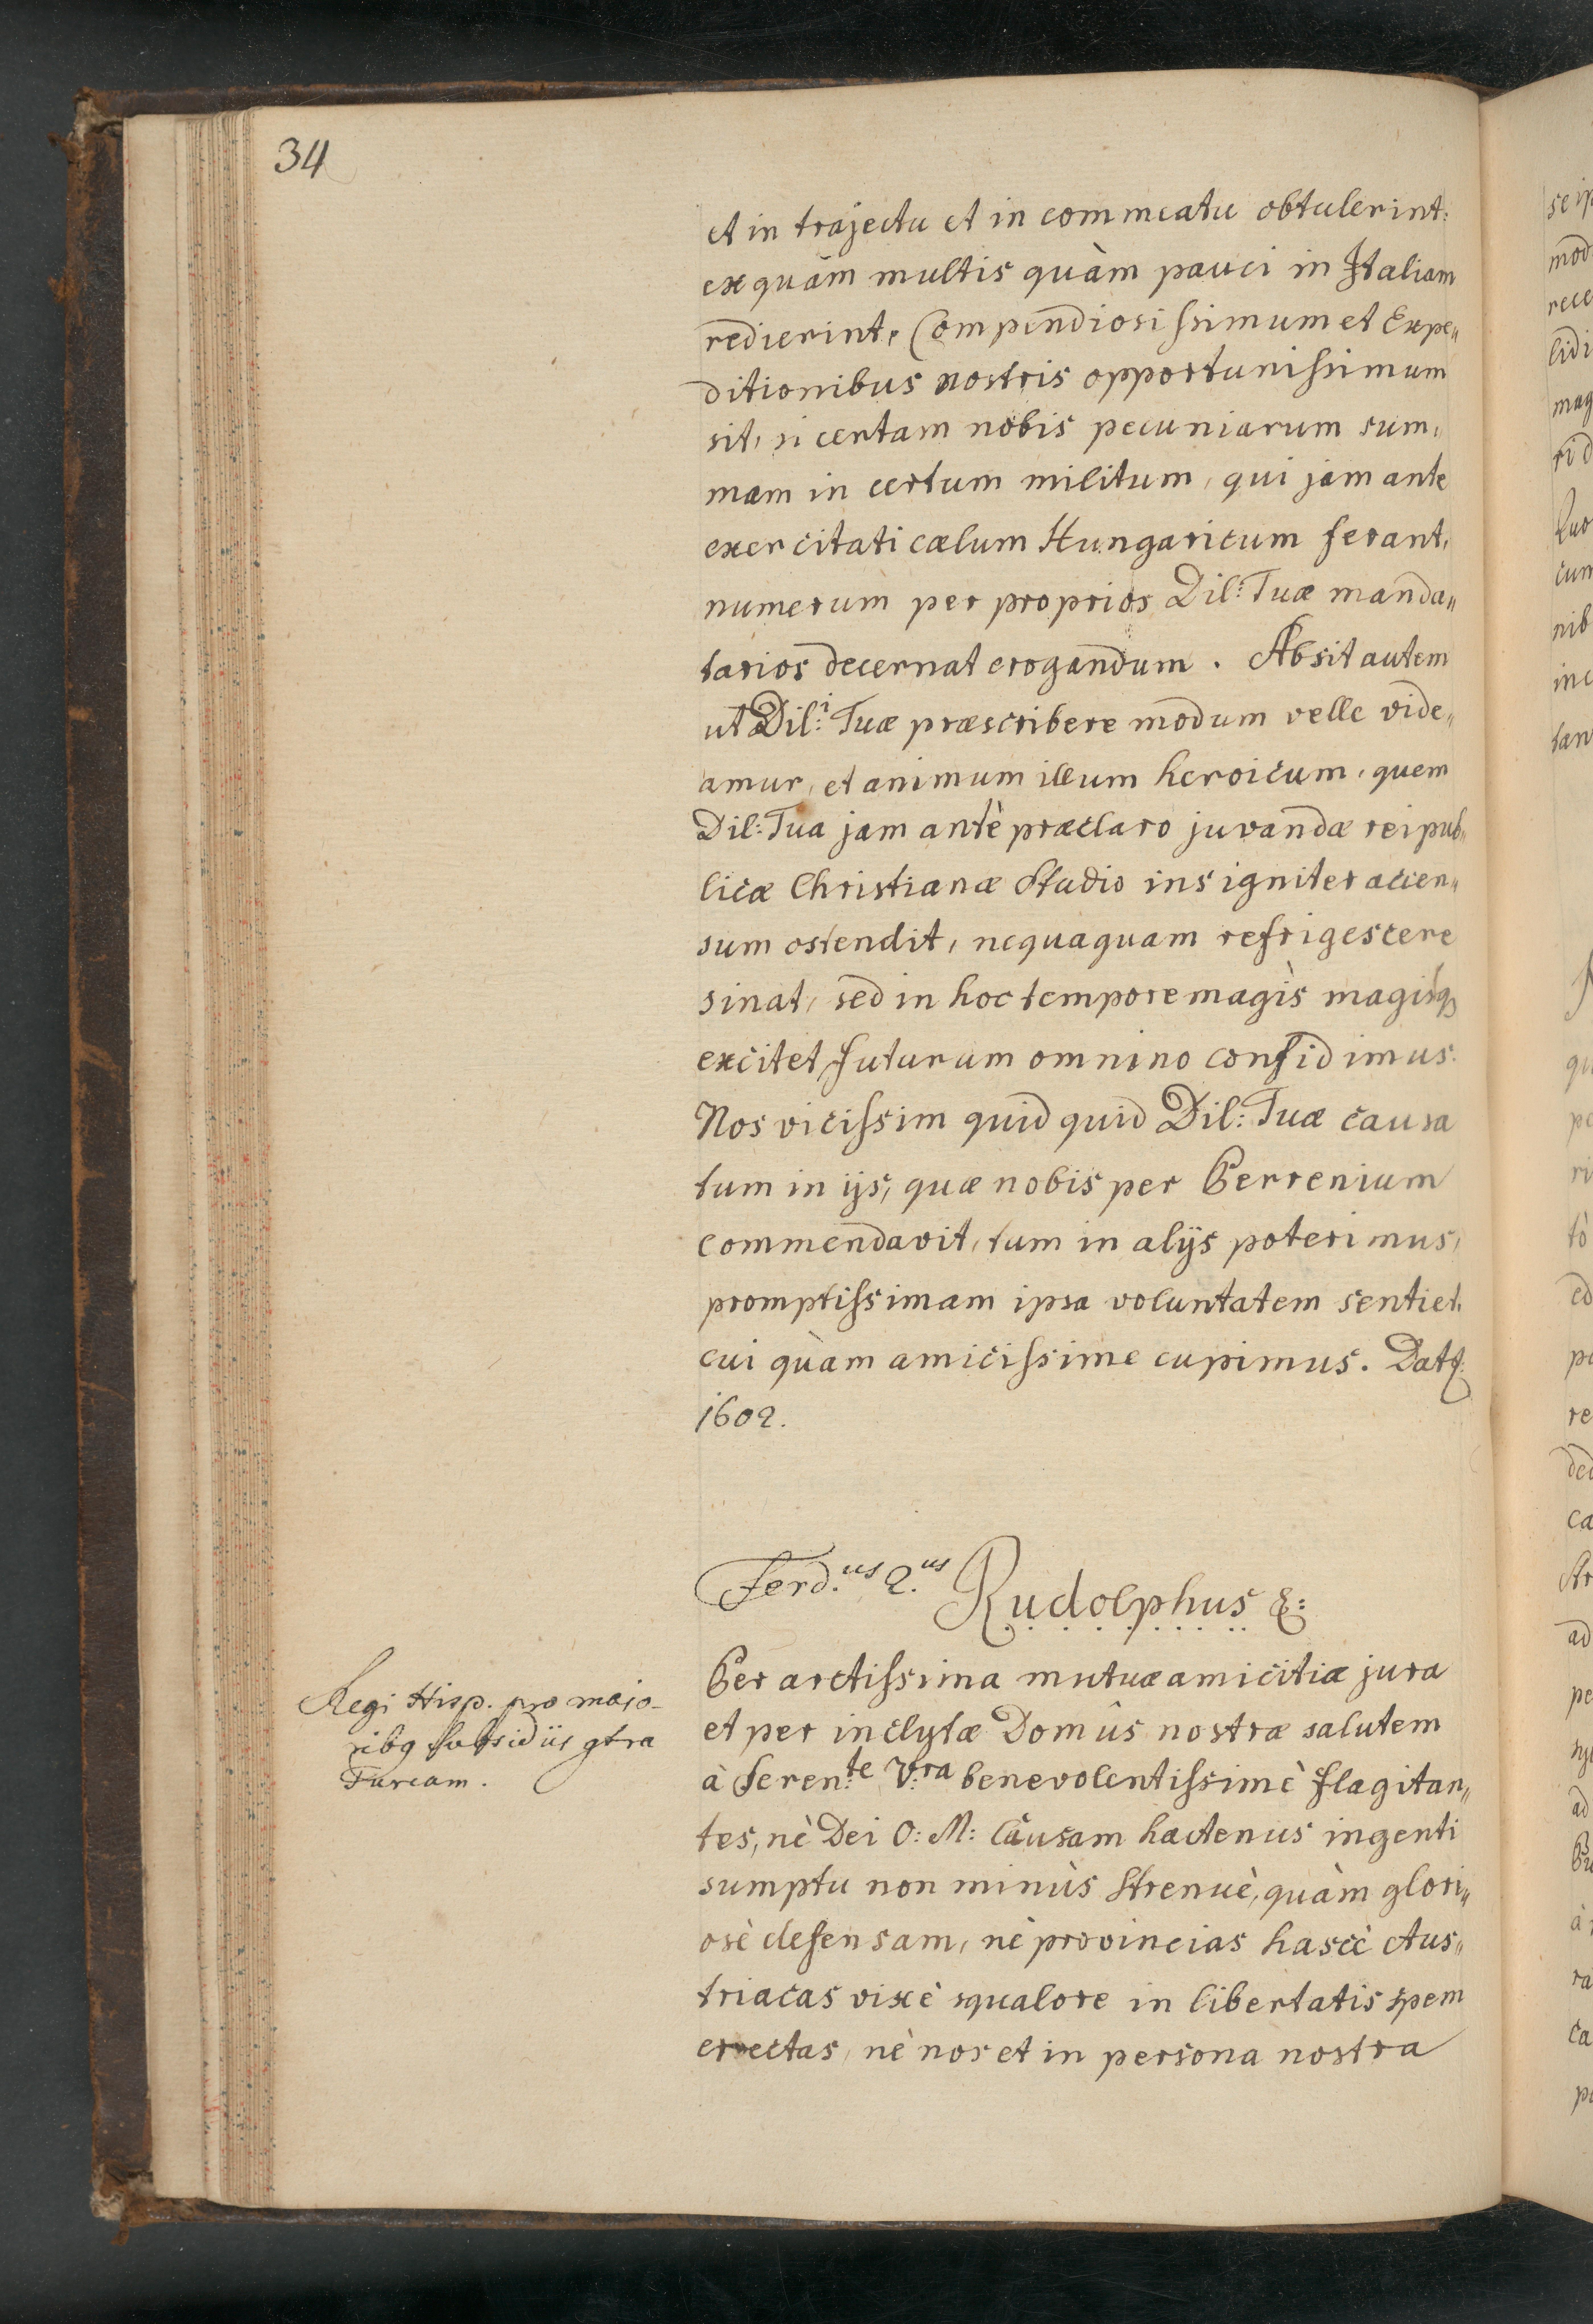 34
et in trajectu et in commeatu obtulerint:
ex quàm multis quàm pauci in Italiam
redierint, Compendiosissimum et Expe„
ditionibus nostris opportunissimum
sit, si certam nobis pecuniarum sum„
mam in certum militum, qui jam ante
exercitati cælum Hungaricum ferant,
numerum per proprios Dil: Tuæ manda„
tarios decernat erogandum. Absit autem
ut Dil:i Tuæ præscribere modum velle vide„
amur, et animum illum heroicum, quem
Dil: Tua jam antè præclaro juvandæ reipub„
licæ Christianæ Studio insigniter accen„
sum ostendit, nequaquam refrigescere
sinat, sed in hoc tempore magìs magisq
excitet, futurum omnino confidimus.
Nos vicissim quid quid Dil: Tuæ causa
tum in ijs, quæ nobis per Perrenium
commendavit, tum in alijs poterimus,
promptissimam ipsa voluntatem sentiet.
cui quàm amicissime cupimus. Dat &:
1602.
Ferd.us 2.us Rudolphus &:
Regi Hisp. pro majo-
ribq subsidiis gtra
Turcam.
Per arctissima mutuæ amicitiæ jura
et per inclytæ Domûs nostræ salutem
à Seren:te V:ra benevolentissimè flagitan„
tes, nè Dei O: M: Causam hactenùs ingenti
sumptu non minùs Strenuè, quàm glori„
osè defensam, nè provincias hascè Aus„
triacas vix è squalore in libertatis spem
erectas, nè nos et in persona nostra